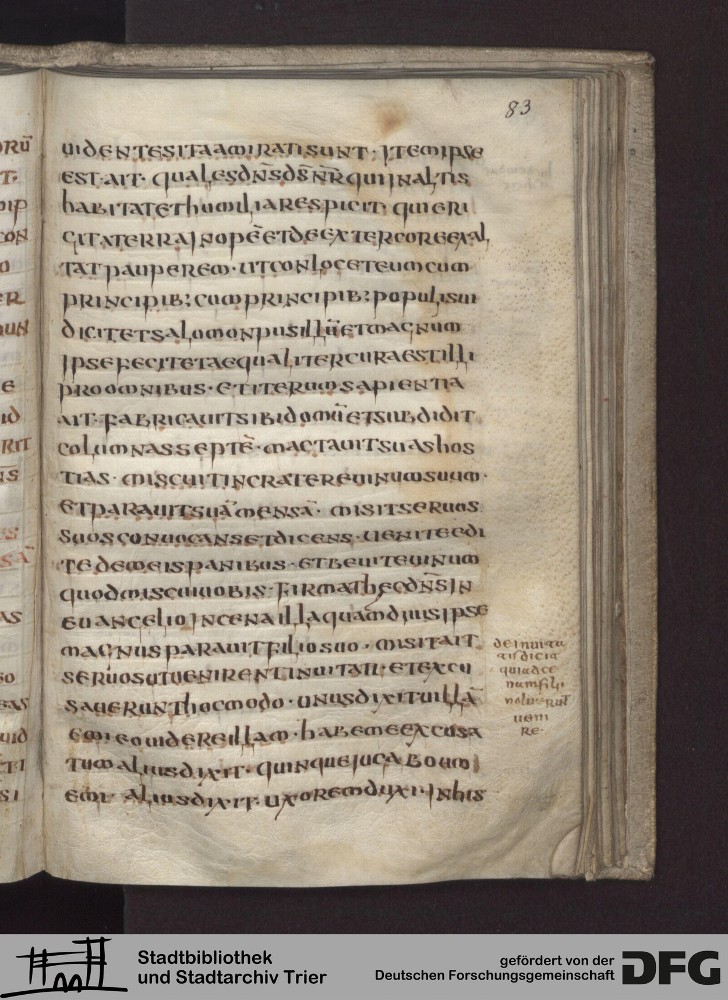 83
uidentesitaamiratisunt · Itemipse
est · ait · qualesdn̄sds̄nr̄quiinaltis
habitatethumiliarespicit · quieri
gitaterrainopēetdecxtercoreexal
tatpauperem · utconloceteumcum
principib; cumprincipib; populisui
dicitetsalomonpusillūetmagnum
ipsefecitetaequalitercuraestilli
proomnibus · etiterumsapientia
ait · fabricauitsibidomūetsubdidit
columnasseptē · mactauitsuashos
tias · miscuitincraterēuinumsuum ·
etparauitsuāmensā · misitseruos
suosconuocansetdicens · ueniteedi
tedemeispanibus · etbeuiteuinum
quodmiscuiuobis · firmathecdn̄sin
euangelioincenaillaquamdiuisipse
magnusparauitfiliosuo · misitait
seruosutuenirentinuitati · etexcu
sauerunthocmodo · unusdixituillā
emieouidereillam · habemeexcusa
tum aliusdixit · quinqueiucaboum
emi · aliusdixit · uxoremduxi · Inhis
deinuita
tisdicit
quiadce
namfili
noluerut̄
ueni
re ·
Stadtbibliothek
und Stadtarchiv Trier
gefördert von der
Deutschen Forschungsgemeinschaft
DFG